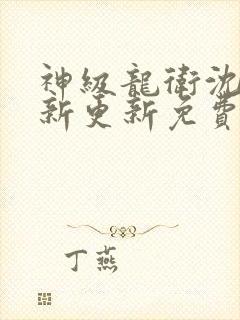 神級龍衛沈
新更新免費
丁燕